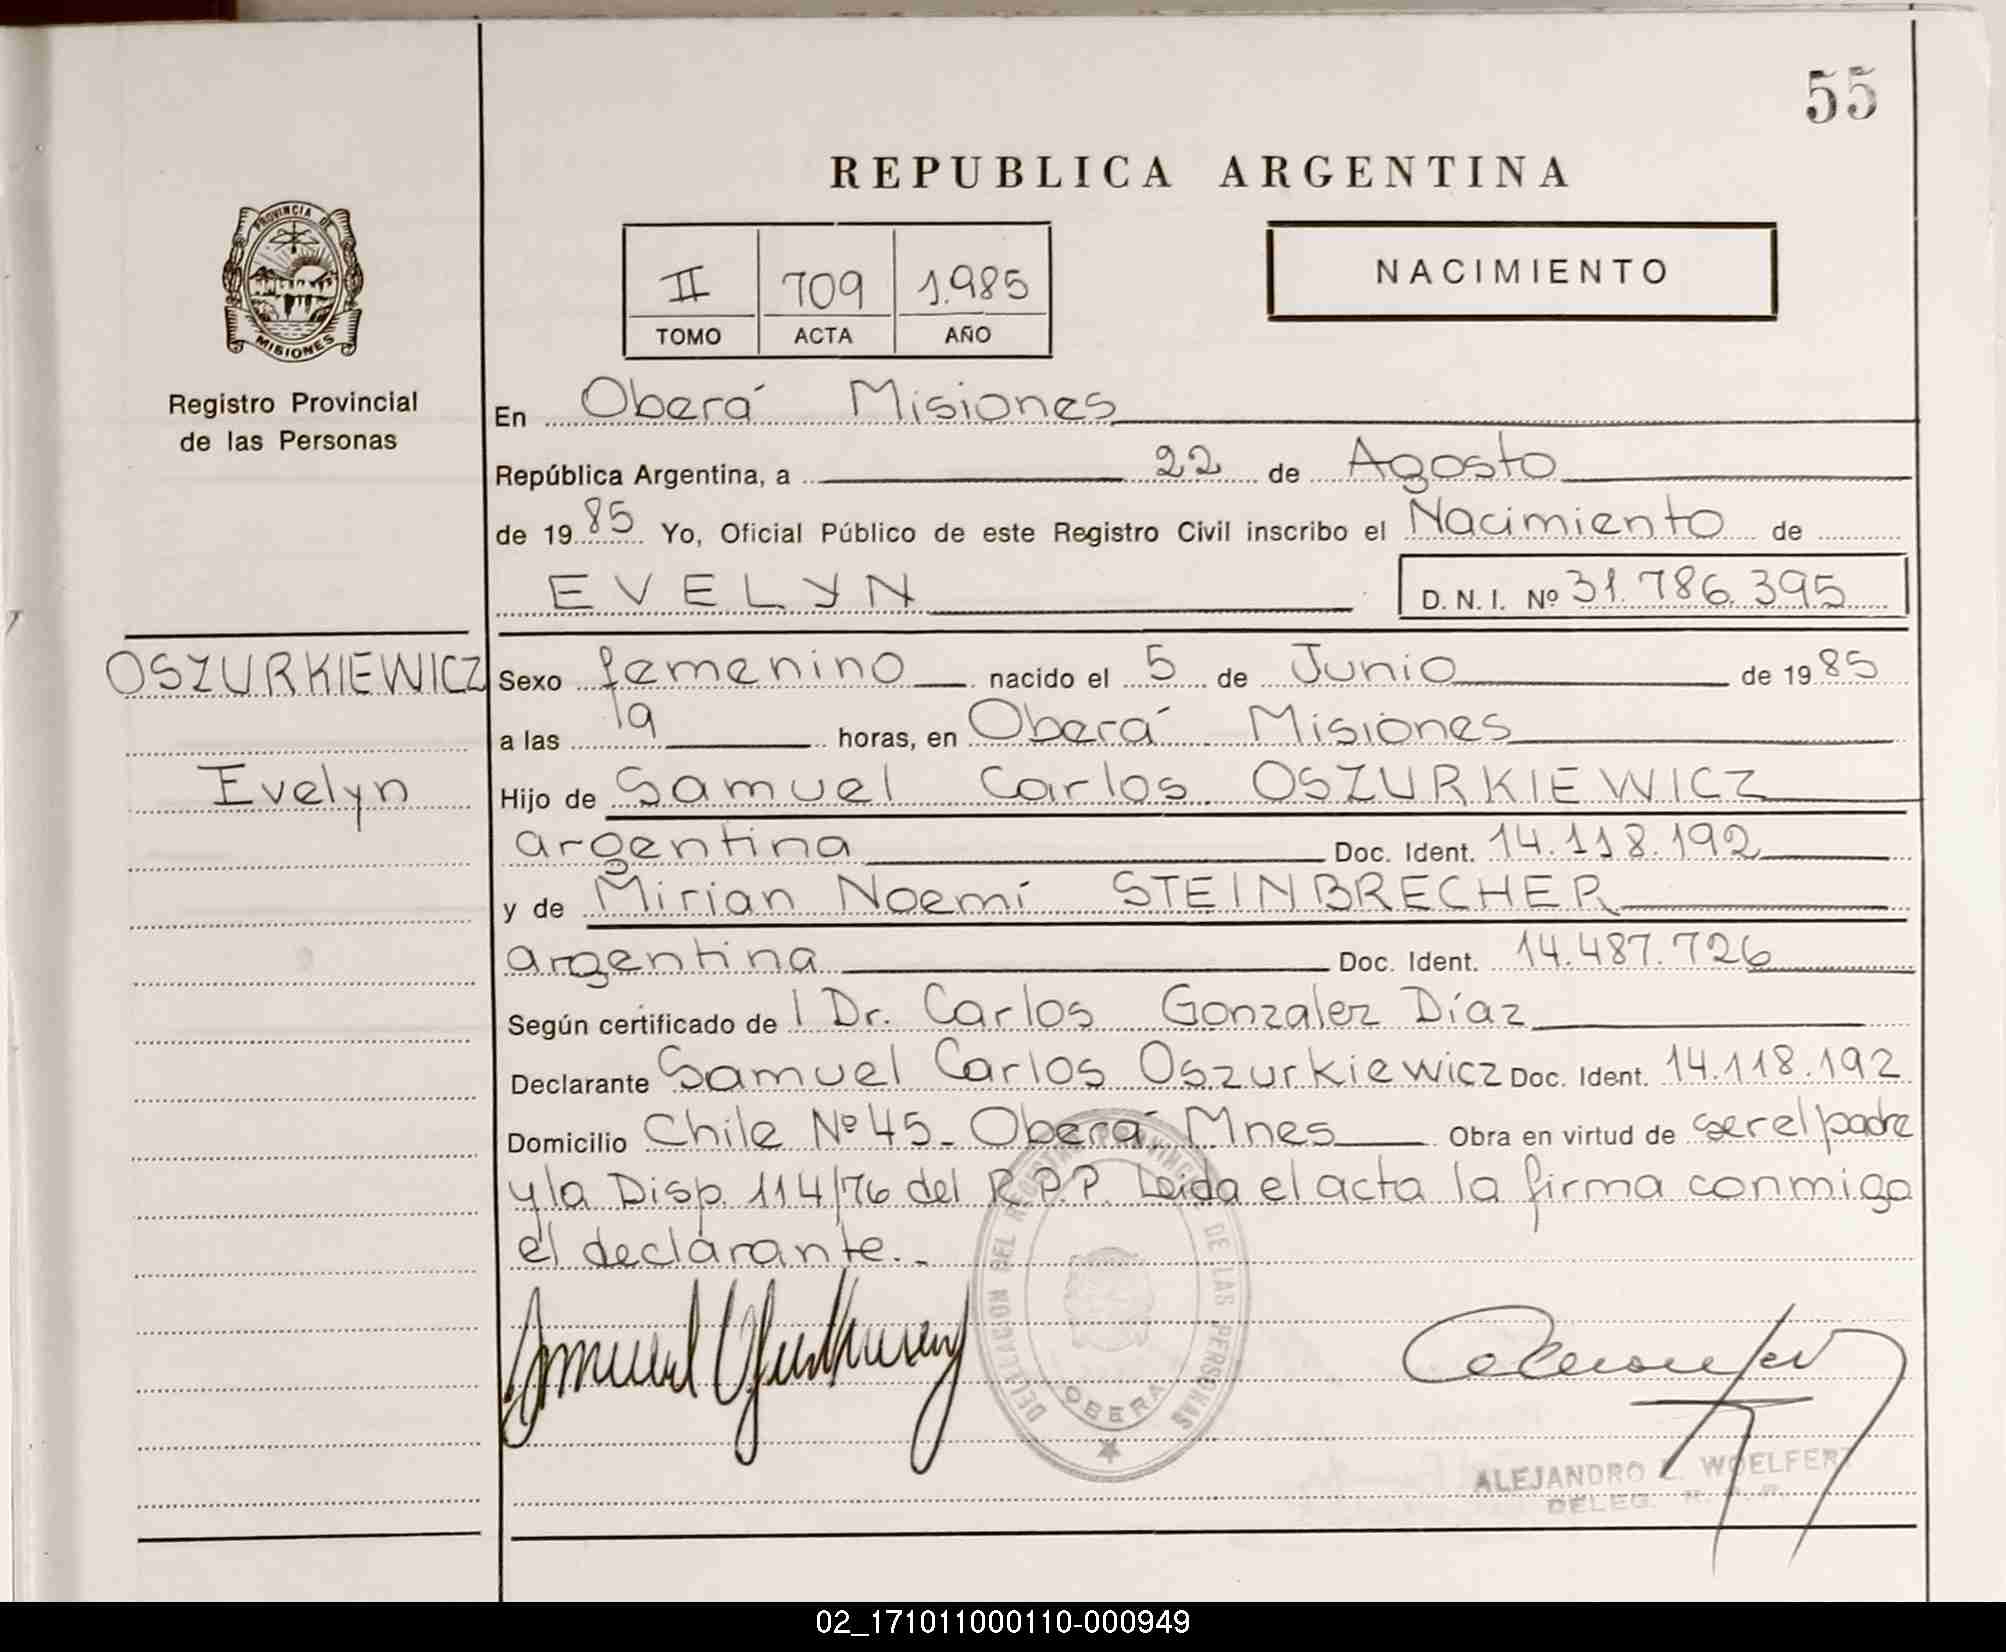 55
REPUBLICA ARGENTINA
PROVINCIA DE
MISIONES
II 709 1.985
TOMO ACTA AÑO
NACIMIENTO
Registro Provincial
de las Personas
En Oberá Misiones
República Argentina, a 22 de Agosto
de 1985 Yo, Oficial Público de este Registro Civil inscribo el Nacimiento de
EVELYN D.N.I. Nº 31.786.395
OSZURKIEWICZ
Evelyn
Sexo femenino nacido el 5 de Junio de 1985
a las 19 horas, en Oberá Misiones
Hijo de Samuel Carlos OSZURKIEWICZ
argentina Doc. Ident. 14.118.192
y de Mirian Noemí STEINBRECHER
argentina Doc. Ident. 14.487.726
Según certificado de l Dr. Carlos Gonzalez Díaz
Declarante Samuel Carlos Oszurkiewicz Doc. Ident. 14.118.192
Domicilio Chile Nº 45- Oberá Mnes Obra en virtud de ser el padre
y la Disp. 114/76 del R.P.P. Leida el acta la firma conmigo
el declarante.-
DEL REGISTRO PROVINCIAL DE LAS PERSONAS
OBERA
ALEJANDRO L. WOELFERT
DELEG. R. P. P.
02_171011000110-000949